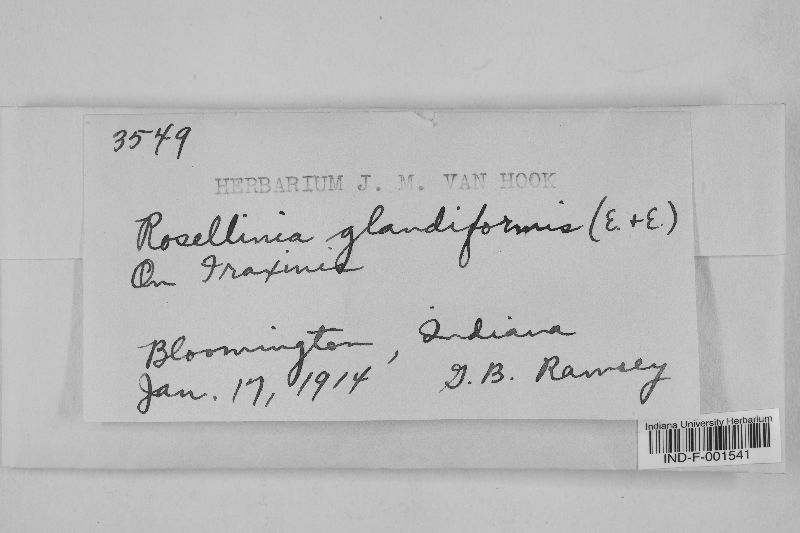 3549
HERBARIUM J. M. VAN HOOK
Rosellinia glandiformis (E. + E.)
On Fraxinis
Bloomington, Indiana
Jan. 17, 1914 G. B. Ramsey
Indiana University Herbarium
IND-F-001541